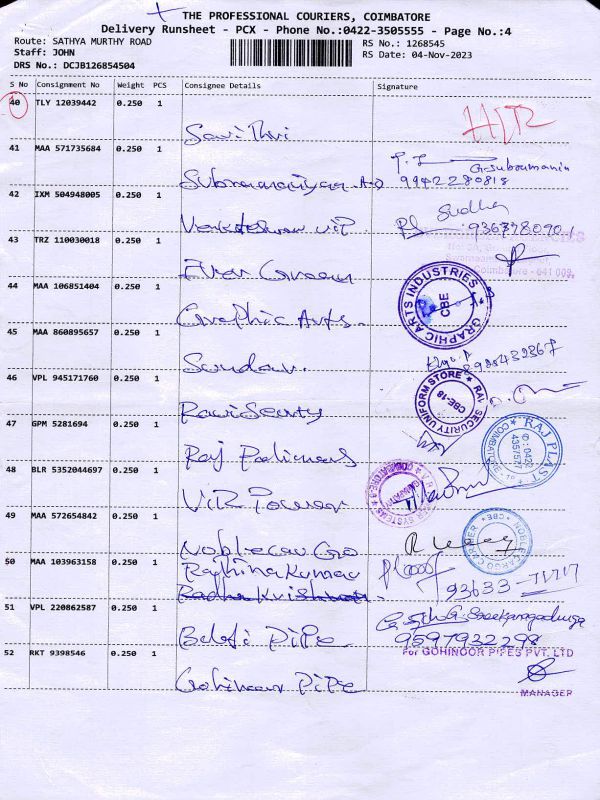 THE PROFESSIONAL COURIERS, COIMBATORE
Delivery Runsheet - PCX - Phone No.:0422-3505555 - Page No.:4
Route: SATHYA MURTHY ROAD
RS No.: 1268545
Staff: JOHN
RS Date: 04-Nov-2023
DRS No.: DCJB126854504
S No Consignment No Weight PCS Consignee Details Signature
40 TLY 12039442 0.250 1
Savithri
41 MAA 571735684 0.250 1
G. Subramania
Subramaniyan 9942280818
42 IXM 504948005 0.250 1
Sudha
Venkateswara
43 TRZ 110030018 0.250 1
Ever Green
Coimbatore - 641 009
44 MAA 106851404 0.250 1
GRAPHIC ARTS INDUSTRIES CBE
Graphic Arts
45 MAA 860895657 0.250 1
Sundar
46 VPL 945171760 0.250 1
RAVI SECURITY UNIFORM STORE CBE-18
Ravi Security
47 GPM 5281694 0.250 1
RAJ PLAST COIMBATORE
Raj Polimers
48 BLR 5352044697 0.250 1
VIR Power
49 MAA 572654842 0.250 1
NOBLE CARGO CARRIER CBE
Noble Car Go
50 MAA 103963158 0.250 1
Rathina Kumar
Radha Krishnan
93633
51 VPL 220862587 0.250 1
PiPe
9597932298
For GOHINOOR PIPES PVT. LTD
52 RKT 9398546 0.250 1
Gohinoor PiPe
MANAGER